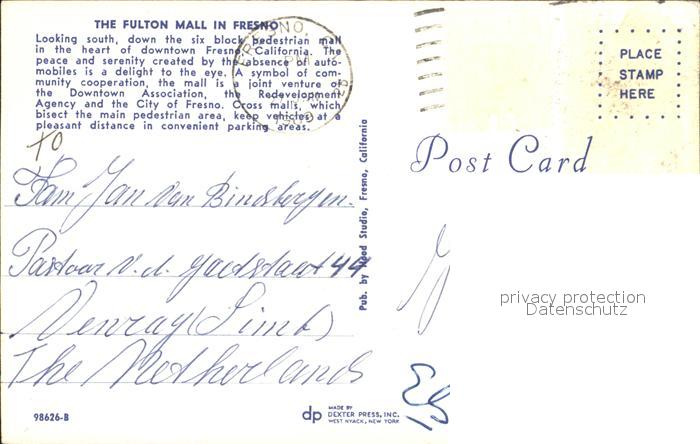 THE FULTON MALL IN FRESNO
Looking south, down the six block pedestrian mall
in the heart of downtown Fresno, California. The
peace and serenity created by the absence of auto-
mobiles is a delight to the eye. A symbol of com-
munity cooperation, the mall is a joint venture of
the Downtown Association, the Redevelopment
Agency and the City of Fresno. Cross malls, which
bisect the main pedestrian area, keep vehicles at a
pleasant distance in convenient parking areas.
FRESNO,
PM
PLACE
STAMP
HERE
Post Card
TO
Fam Jan van Bindsbergen.
Pastoor v. d. 44
Venray (Limb)
The Netherlands
Pub. by Hood Studio, Fresno, California
privacy protection
Datenschutz
98626-B
dp
MADE BY
DEXTER PRESS, INC.
WEST NYACK, NEW YORK